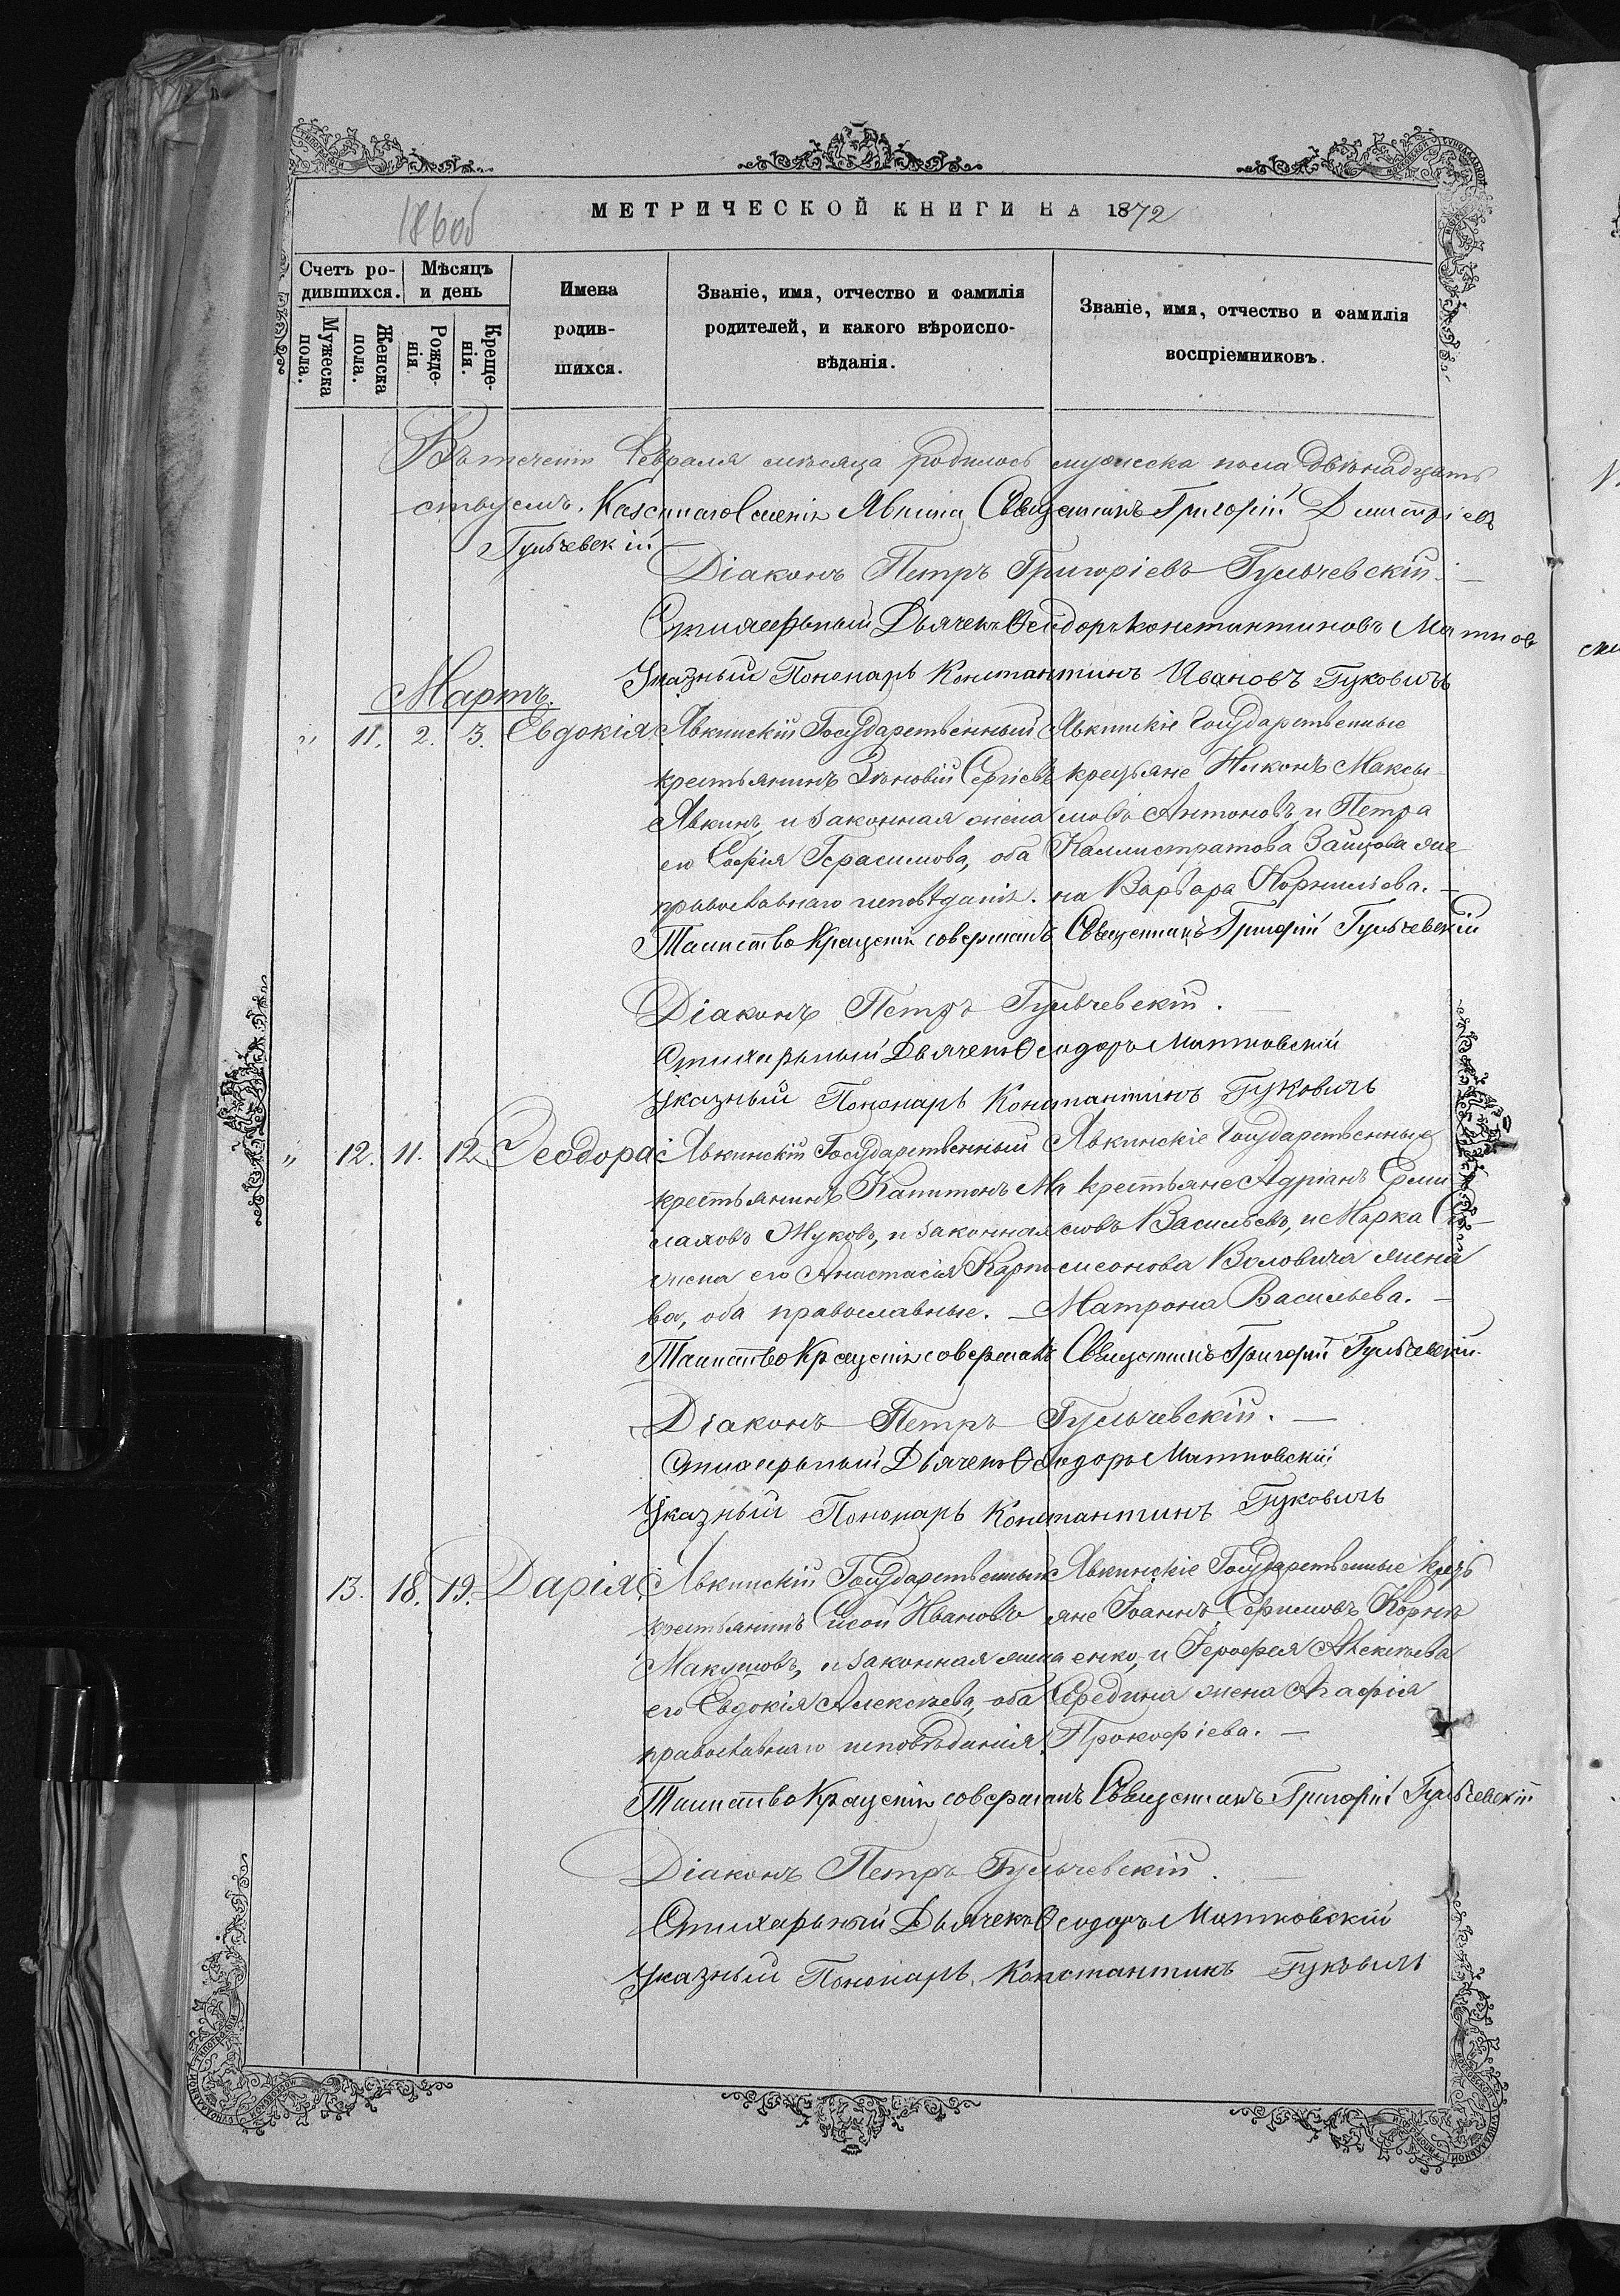 МЕТРИЧЕСКОЙ КНИГИ НА 1872
186об
Счетъ ро-
дившихся.
Мужеска
пола.
Женска
пола.
Мѣсяцъ
и день
Рожде-
нія
Креще-
нія.
Имена
родив-
шихся.
Званіе, имя, отчество и фамилія
родителей, и какого вѣроиспо-
вѣданія.
Званіе, имя, отчество и фамилія
воспріемниковъ.
Въ теченіи Февраля мѣсяца родилось мужеска пола двѣнадцать
Казеннаго Селенія Явкина Священникъ Григорій Дмитріевъ
Гульчевскій
Діаконъ Петръ Григоріевъ Гульчевскій.
Стихарный Дьячекъ Ѳеодоръ Константиновъ
Указный Пономарь Константинъ Ивановъ Гуковичъ
Мартъ.
" 11. 2. 3. Евдокія.
Явкинскій Государственный
крестьянинъ Зѣновій Сергіевъ
Явкинъ, и законная жена
его Софія Герасимова, оба
православнаго исповѣданія.
Явкинскіе Государственные
крестьяне Никонъ Максы-
мовъ Антоновъ, и Петра
Каллистратова Зайцова же-
на Варвара Корнилієва.
Таинство Крещенія совершалъ Священникъ Григорій Гульчевскій
Діаконъ Петръ Гульчевскій.
Стихарный Дьячекъ Ѳеодоръ Матковскій
Указный Пономарь Константинъ Гуковичъ
" 12. 11. 12. Ѳеодора
Явкинскій Государственный
крестьянинъ Капитонъ Ма
лаховъ Жуковъ, и законная
жена его Анастасія Карпо
ва, оба православные.
Явкинскіе Государственные
крестьяне Адріанъ Ерми
ловъ Васильевъ, и Марка Си-
меонова Воловича жена
Матрона Васильева.
Таинство Крещенія совершалъ Священникъ Григорій Гульчевскій.
Діаконъ Петръ Гульчевскій.
Стихарный Дьячекъ Ѳеодоръ Матковскій
Указный Пономарь Константинъ Гуковичъ
13. 18. 19. Дарія.
Явкинскій Государственный
крестьянинъ Сисой Ивановъ
Макумовъ, и законная жена
его Евдокія Алексѣева, оба
православнаго исповѣданія.
Явкинскіе Государственные кресть
яне Іоаннъ Ефимовъ Корнѣ
енко, и Іерофея Алексѣева
Середина жена Агафія
Прокофіева.
Таинство Крещенія совершалъ Священникъ Григорій Гульчевскій
Діаконъ Петръ Гульчевскій.
Стихарный Дьячекъ Ѳеодоръ Матковскій
Указный Пономарь Константинъ Гуковичъ